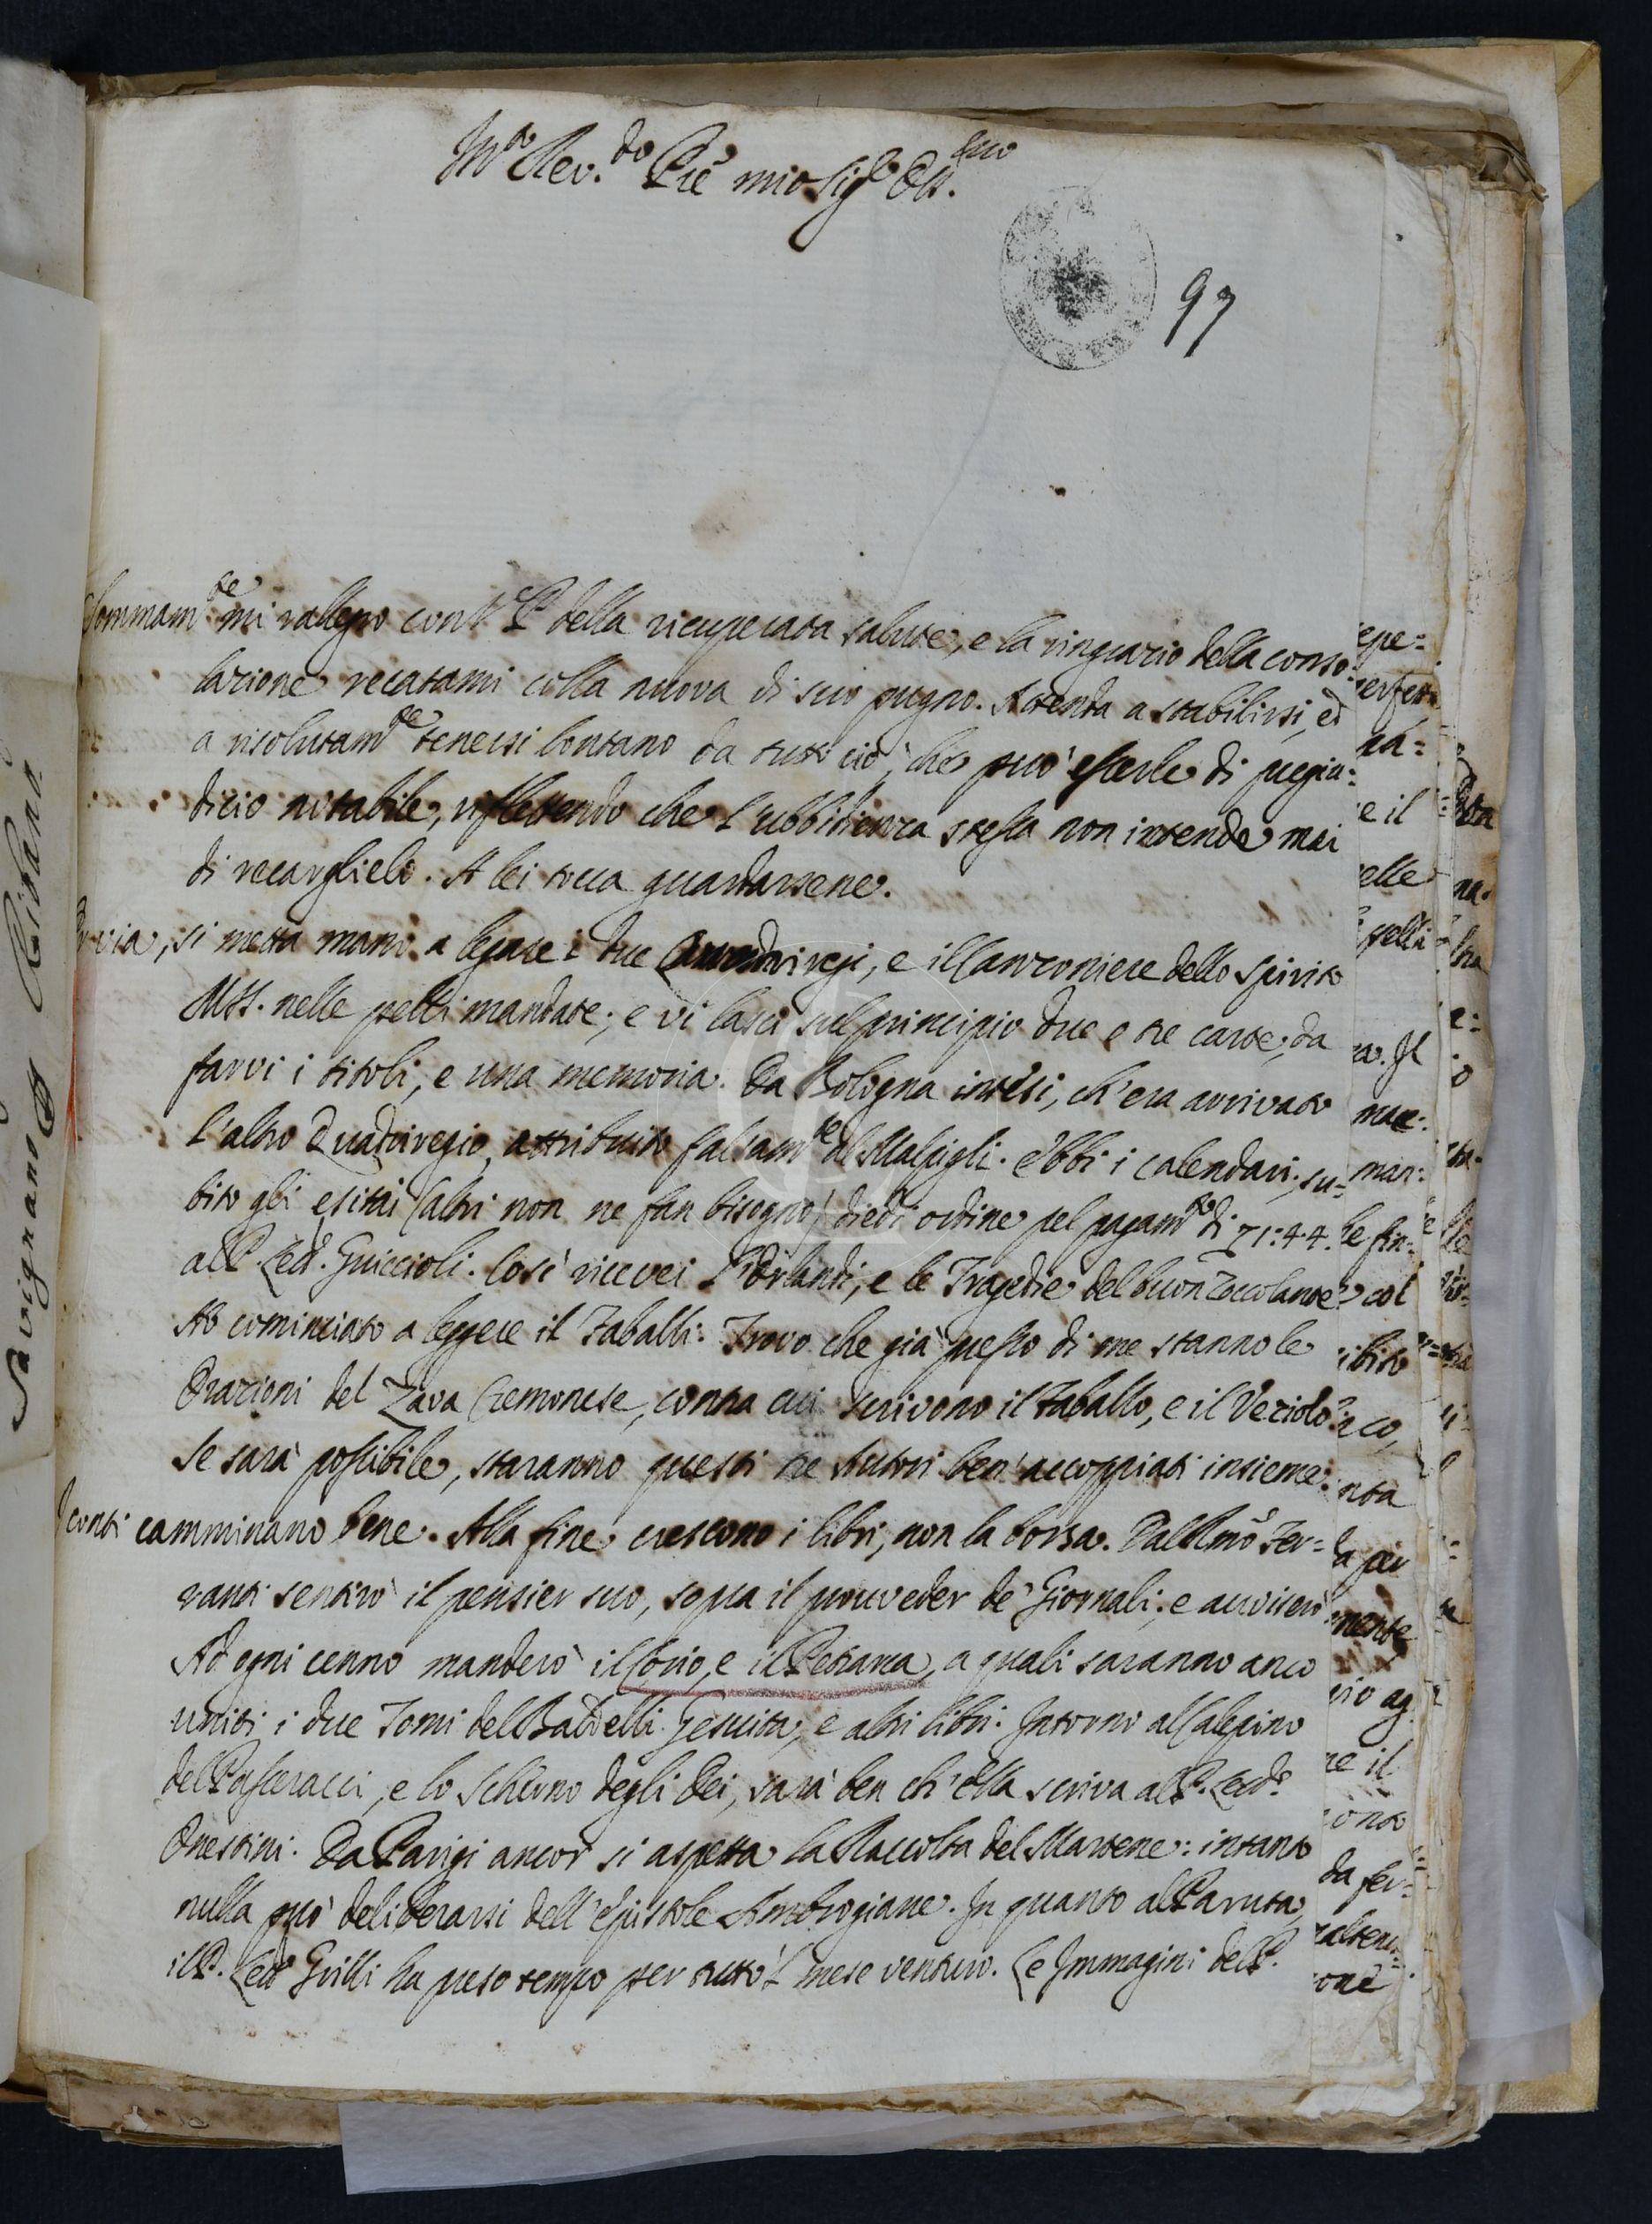 M.to Rev.do Pre mio Sig.e Oss.mo
97
Sommam.te mi rallegro con V. P. della ricuperata salute, e la ringrazio della conso=
lazione recatami colla nuova di suo pugno. Attenda a stabilirsi, ed
a risolutam.te tenersi lontano da tutto ciò, che può esserle di pregiu=
dicio notabile, riflettendo che l'ubbidienza stessa non intende mai
di recarglielo. A lei tocca guardarsene.
via, si metta mano a legare i due Quadriregi, e il Canzoniere dello Spirito
MSS. nelle pelli mandate; e vi lasci sul principio due o tre carte, da
farvi i titoli, e una memoria. Da Bologna intesi, ch'era arrivato
l'altro Quadriregio, attribuito falsam.te al Malpigli. Ebbi i calendari; su=
bito gli esitai (altri non ne fan bisogno) diedi ordine pel pagam.to di 71:44.
al P. Led. Guiccioli. Così ricevei l'Orlandi, e le Tragedie del buon Zoccolante
Ho cominciato a leggere il Faballi: Trovo che già presso di me stanno le
Orazioni del Zava Cremonese, contra cui scrivono il Faballo, e il Veriolo
Se sarà possibile, staranno questi tre Autori ben accoppiati insieme.
I conti camminano bene. Alla fine crescono i libri, non la borsa. Dal Rmo Fer=
ranti sentirò il pensier suo, sopra il provveder de' Giornali; e avviserò
Ad ogni cenno manderò il Corio, e il Petrarca, a quali saranno anco
uniti i due Tomi del Baldelli Gesuita, e altri libri. Intorno al Calepino
del Passeracci, e lo Scherno degli Dei, sarà ben ch'Ella scriva al P. Led.
Onestini. Da Parigi ancor si aspetta la Raccolta del Martene: intanto
nulla può deliberarsi dell'Epistole Ambrogiane. In quanto al Paruta,
il P. Led Grilli ha preso tempo per tutto 'l mese venturo. Le Immagini del P.
Savignano